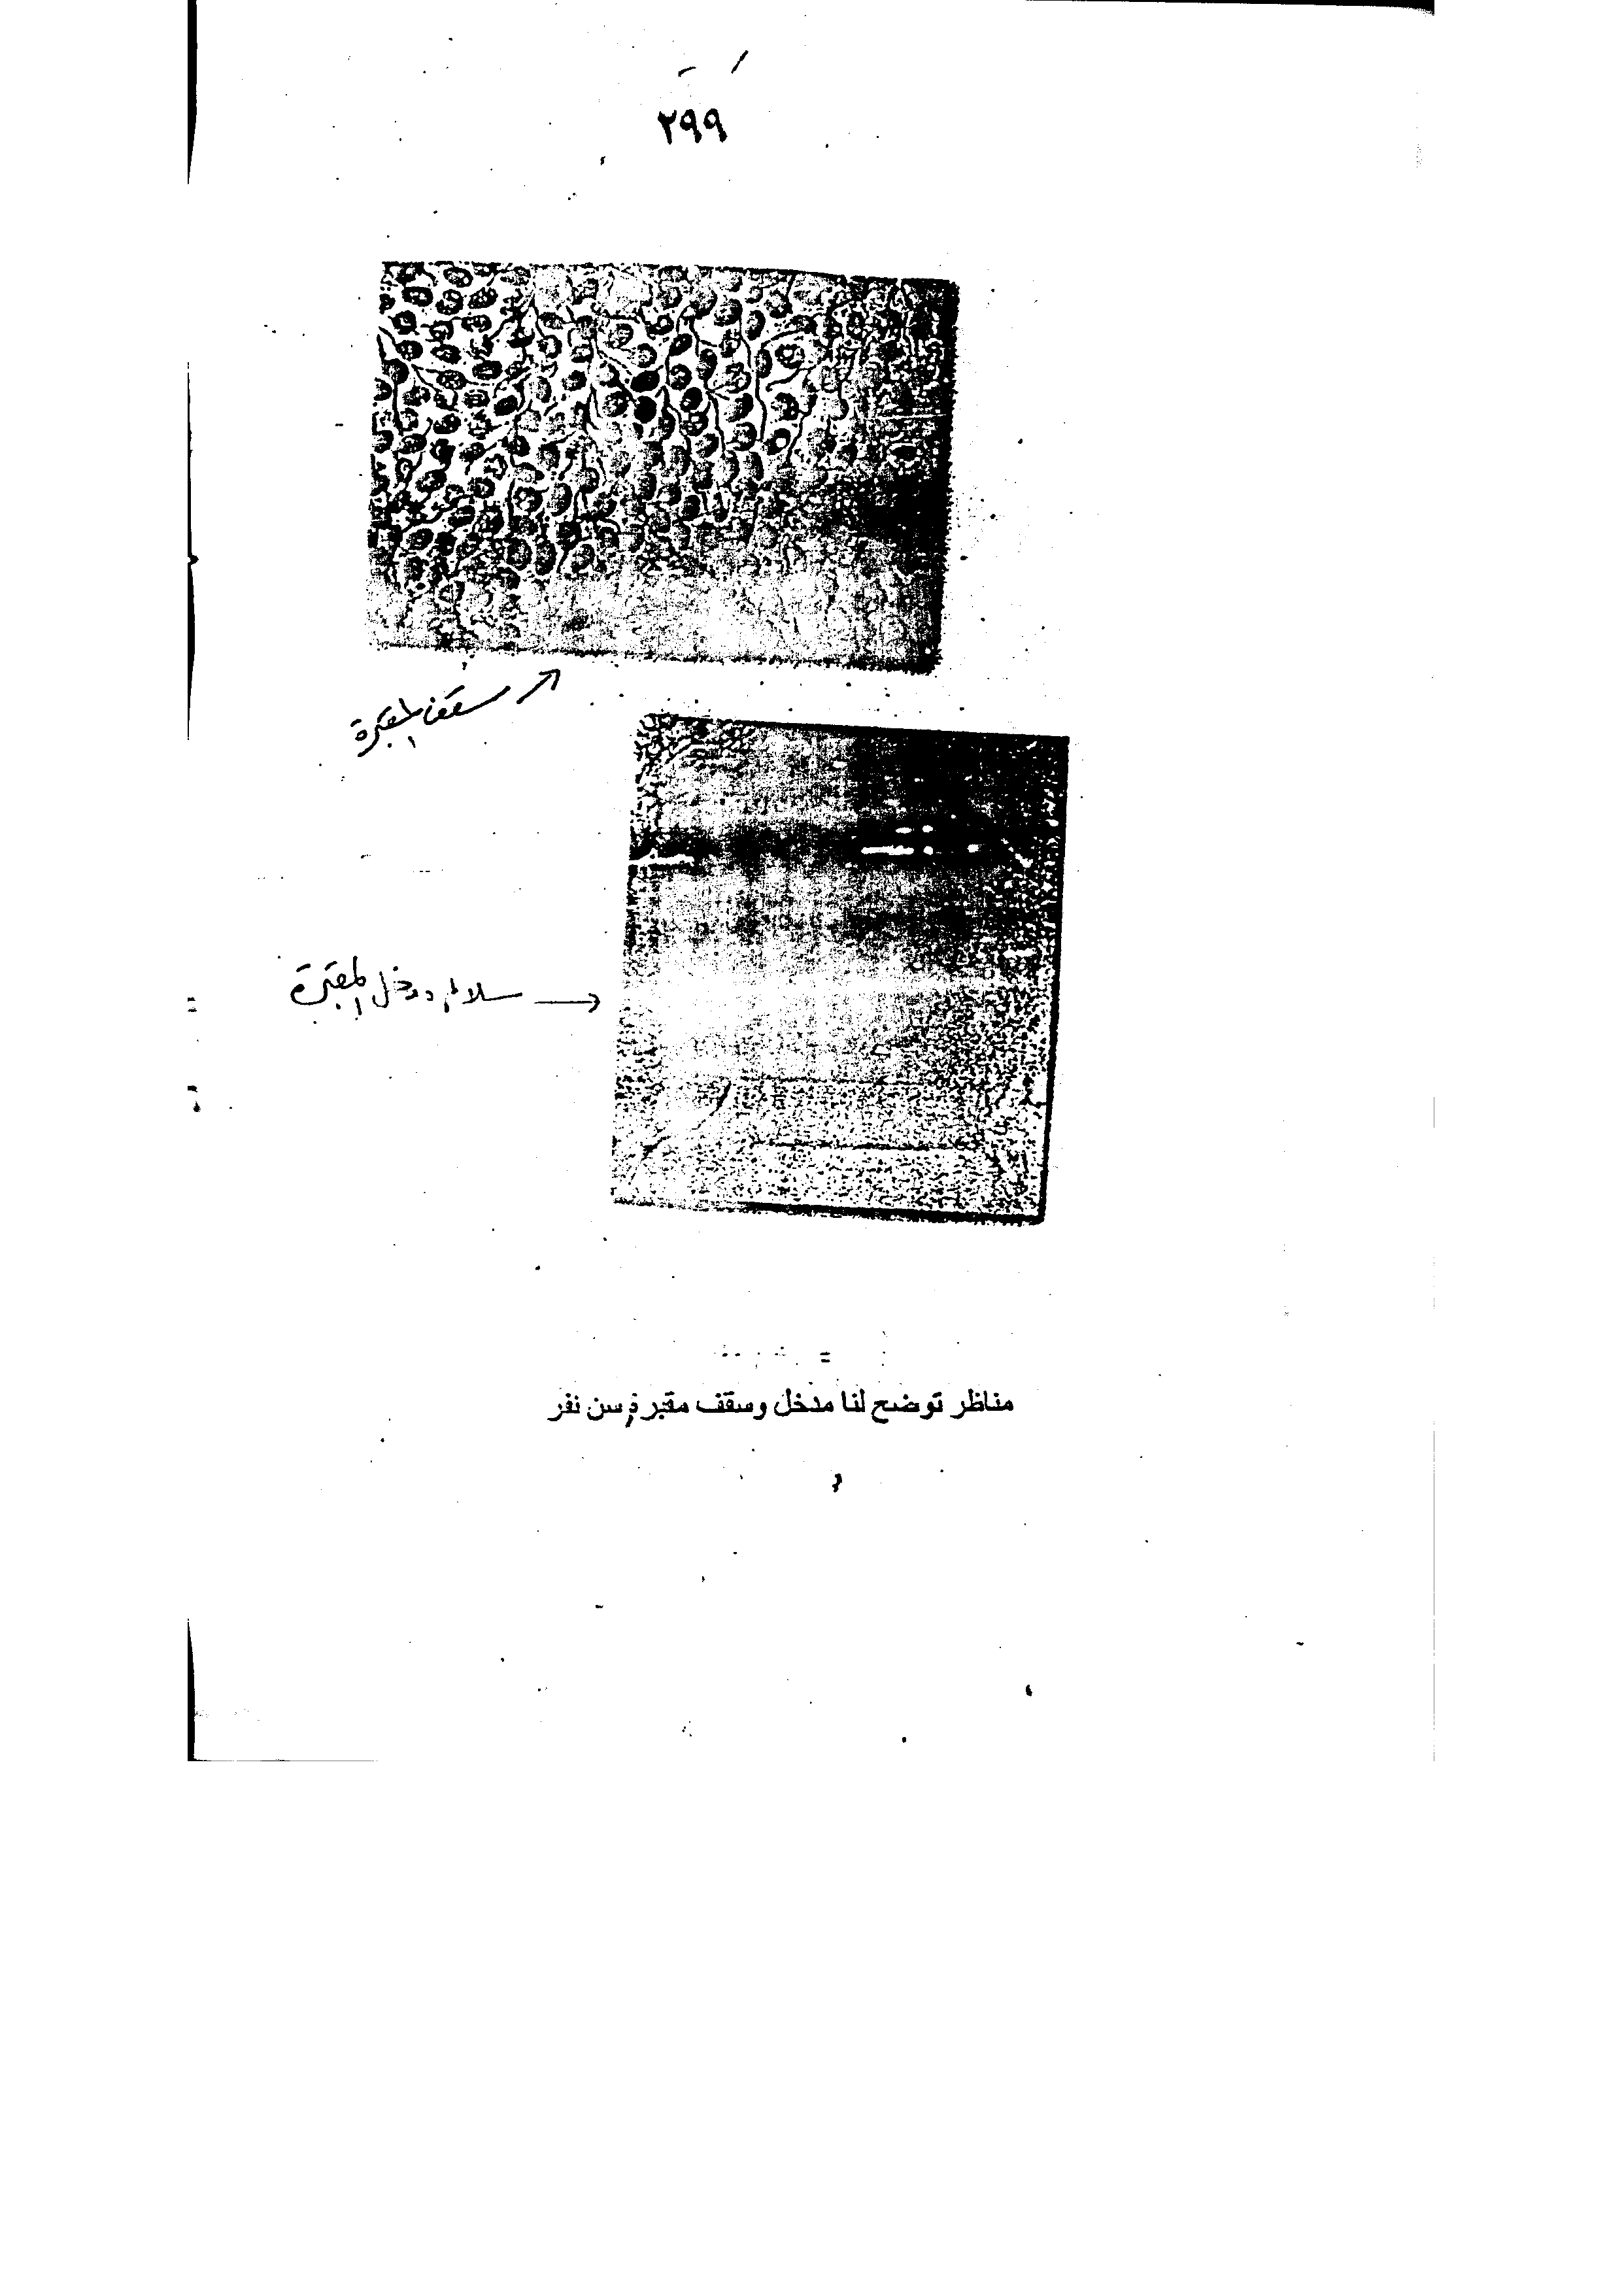 ٢٩٩
سقف المقبرة
سلالم مدخل المقبرة
مناظر توضح لنا مدخل وسقف مقبرة سن نفر